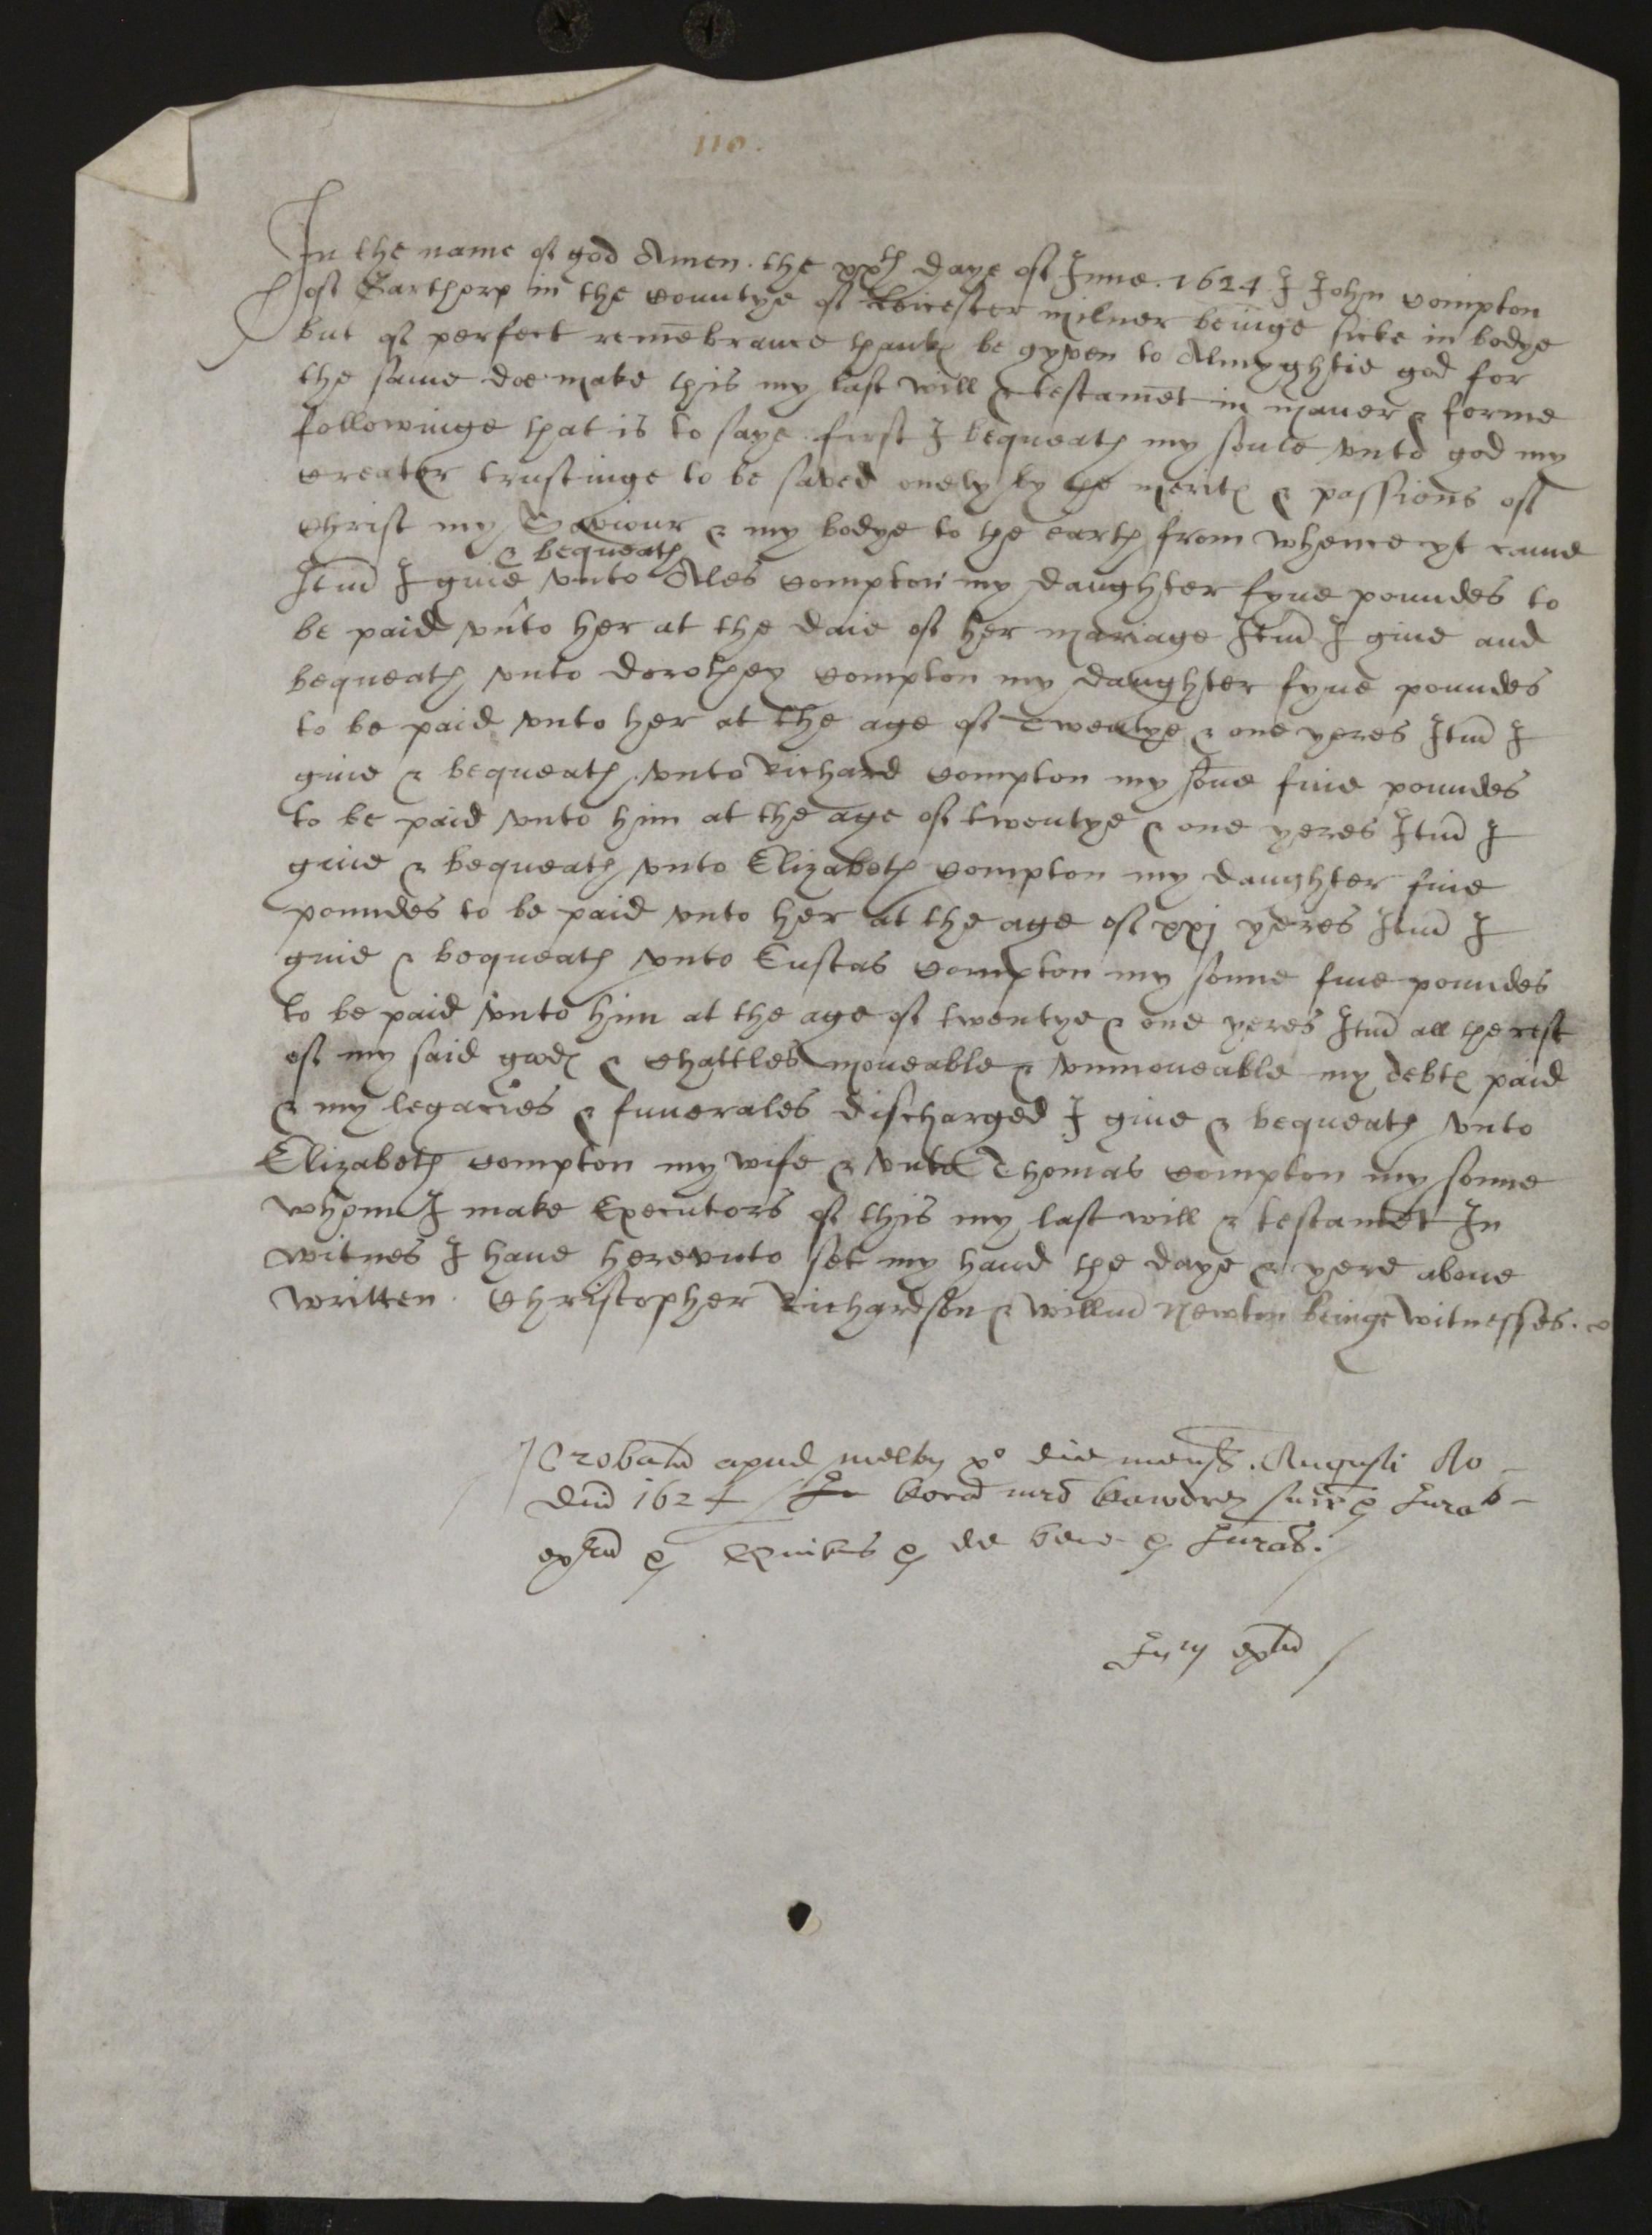 110.
In the name of god Amen. the xxth daye of June. 1624 I John Compton
of Garthorp in the Countye of Leicester milner beinge sicke in bodye
but of perfect remēbrance thankes be gyven to Almyghtie god for
the same doe make this my last will & testamēt in maner & forme
followinge that is to saye. first I bequeath my soule vnto god my
Creator trustinge to be saved onely by the merites & passions of
Christ my Saviour & my bodye to the earth from whence yt came
& bequeath
Itm̄ I giue vnto Ales Compton my daughter fyue poundes to
be paid vnto her at the daie of her mariage Itm̄ I giue and
bequeath vnto Dorothey Compton my daughter fyue poundes
to be paid vnto her at the age of Twentye & one yeres Itm̄ I
giue & bequeath vnto Richard Compton my sone fiue poundes
to be paid vnto him at the age of twentye & one yeres Itm̄ I
giue & bequeath vnto Elizabeth Compton my daughter fiue
poundes to be paid vnto her at the age of xxj yeres Itm̄ I
giue & bequeath vnto Eustas Compton my sonne fiue poundes
to be paid vnto him at the age of twentye & one yeres Itm̄ all the rest
of my said goodes & Chattles moueable & vnmoueable my debtes paid
& my legacies & funerales discharged I giue & bequeath vnto
Elizabeth Compton my wife & vnto Thomas Compton my sonne
whom I make Executors of this my last will & testamēt In
witnes I haue herevnto set my hand the daye & yere aboue
written. Christopher Richardson & Willm̄ Newton beinge witnesses.
Probatū apud Melton xo die mens. Augusti Ao
Dni 1624 Jurat
Jurat.